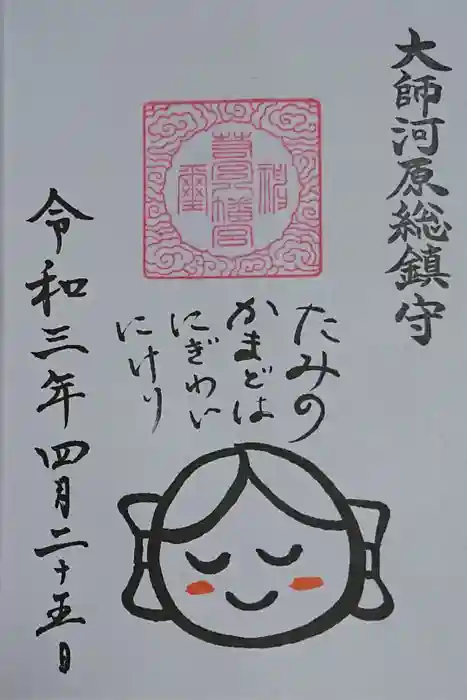 大師河原総鎮守
たみの
かまどは
にぎわい
にけり
令和三年四月二十五日